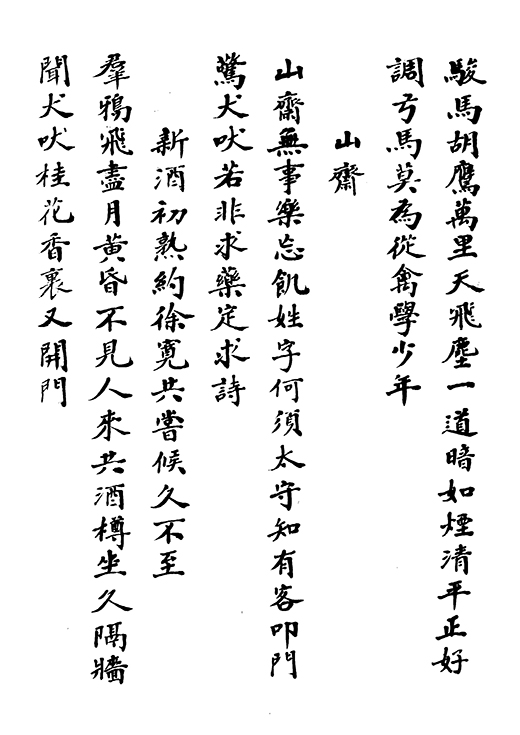 駿馬胡鷹萬里天飛塵一道暗如煙清平正好
調弓馬莫為從禽學少年
山齋
山齋無事樂忘飢姓字何須太守知有客叩門
驚犬吠若非求藥定求詩
新酒初熟約徐寬共嘗候久不至
羣鴉飛盡月黃昏不見人來共酒樽坐久隔牆
聞犬吠桂花香裏又開門